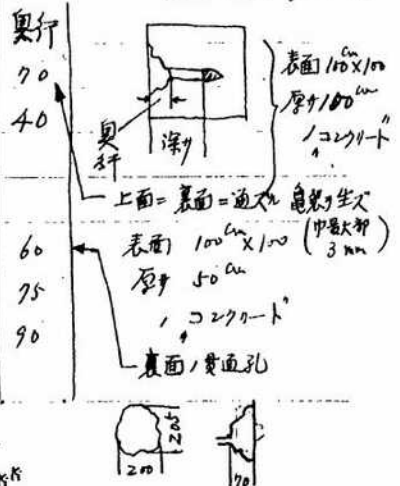 奥行
70
40
奥行
深サ
表面 100cm×100
厚サ 100cm
ノコンクリート
上面=裏面=通ズル亀裂ヲ生ズ
(巾最大部
3mm)
60
75
90
表面 100cm×100
厚サ 50cm
ノコンクリート
裏面ノ貫通孔
205
200
70